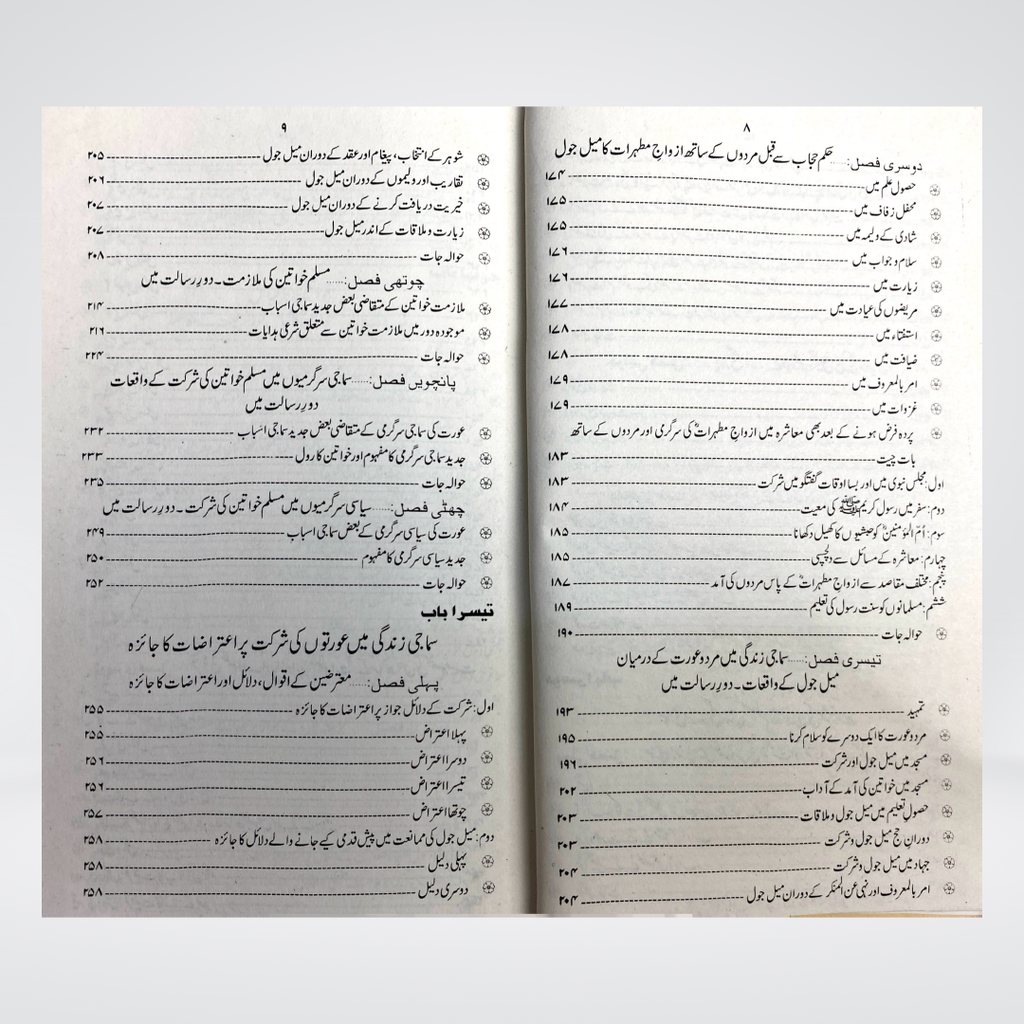 ۸
دوسری فصل:......حکم حجاب سے قبل مردوں کے ساتھ ازواجِ مطہرات کا میل جول
حصول علم میں ---------- ۱۷۴
محفل زفاف میں ---------- ۱۷۵
شادی کے ولیمہ میں ---------- ۱۷۵
سلام و جواب میں ---------- ۱۷۶
زیارت میں ---------- ۱۷۶
مریضوں کی عیادت میں ---------- ۱۷۷
استفتاء میں ---------- ۱۷۸
ضیافت میں ---------- ۱۷۸
امر بالمعروف میں ---------- ۱۷۹
غزوات میں ---------- ۱۷۹
پردہ فرض ہونے کے بعد بھی معاشرہ میں ازواجِ مطہراتؓ کی سرگرمی اور مردوں کے ساتھ
بات چیت ---------- ۱۸۳
اول: مجلس نبوی میں اور بسا اوقات گفتگو میں شرکت ---------- ۱۸۳
دوم: سفر میں رسول کریم ﷺ کی معیت ---------- ۱۸۴
سوم: اُمّ المؤمنینؓ کو حبشیوں کا کھیل دکھانا ---------- ۱۸۵
چہارم: معاشرہ کے مسائل سے دلچسپی ---------- ۱۸۵
پنجم: مختلف مقاصد سے ازواجِ مطہراتؓ کے پاس مردوں کی آمد ---------- ۱۸۷
ششم: مسلمانوں کو سنت رسول کی تعلیم ---------- ۱۸۹
حوالہ جات ---------- ۱۹۰
تیسری فصل:......سماجی زندگی میں مرد و عورت کے درمیان
میل جول کے واقعات۔ دورِ رسالت میں
تمہید ---------- ۱۹۳
مرد و عورت کا ایک دوسرے کو سلام کرنا ---------- ۱۹۵
مسجد میں میل جول اور شرکت ---------- ۱۹۶
مسجد میں خواتین کی آمد کے آداب ---------- ۲۰۲
حصولِ تعلیم میں میل جول و ملاقات ---------- ۲۰۳
دورانِ حج میل جول و شرکت ---------- ۲۰۳
جہاد میں میل جول و شرکت ---------- ۲۰۴
امر بالمعروف اور نہی عن المنکر کے دوران میل جول ---------- ۲۰۴
۹
شوہر کے انتخاب، پیغام اور عقد کے دوران میل جول ---------- ۲۰۵
تقاریب اور ولیموں کے دوران میل جول ---------- ۲۰۶
خیریت دریافت کرنے کے دوران میل جول ---------- ۲۰۷
زیارت و ملاقات کے اندر میل جول ---------- ۲۰۷
حوالہ جات ---------- ۲۰۸
چوتھی فصل:......مسلم خواتین کی ملازمت۔ دورِ رسالت میں
ملازمت خواتین کے متقاضی بعض جدید سماجی اسباب ---------- ۲۱۴
موجودہ دور میں ملازمت خواتین سے متعلق شرعی ہدایات ---------- ۲۱۶
حوالہ جات ---------- ۲۲۴
پانچویں فصل:......سماجی سرگرمیوں میں مسلم خواتین کی شرکت کے واقعات
دورِ رسالت میں
عورت کی سماجی سرگرمی کے متقاضی بعض جدید سماجی اسباب ---------- ۲۳۲
جدید سماجی سرگرمی کا مفہوم اور خواتین کا رول ---------- ۲۳۳
حوالہ جات ---------- ۲۳۵
چھٹی فصل:......سیاسی سرگرمیوں میں مسلم خواتین کی شرکت۔ دورِ رسالت میں
عورت کی سیاسی سرگرمی کے بعض سماجی اسباب ---------- ۲۴۹
جدید سیاسی سرگرمی کا مفہوم ---------- ۲۵۰
حوالہ جات ---------- ۲۵۲
تیسرا باب
سماجی زندگی میں عورتوں کی شرکت پر اعتراضات کا جائزہ
پہلی فصل:......معترضین کے اقوال، دلائل اور اعتراضات کا جائزہ
اول: شرکت کے دلائل جواز پر اعتراضات کا جائزہ ---------- ۲۵۵
پہلا اعتراض ---------- ۲۵۵
دوسرا اعتراض ---------- ۲۵۶
تیسرا اعتراض ---------- ۲۵۶
چوتھا اعتراض ---------- ۲۵۷
دوم: میل جول کی ممانعت میں پیش قدمی کیے جانے والے دلائل کا جائزہ ---------- ۲۵۸
پہلی دلیل ---------- ۲۵۸
دوسری دلیل ---------- ۲۵۸